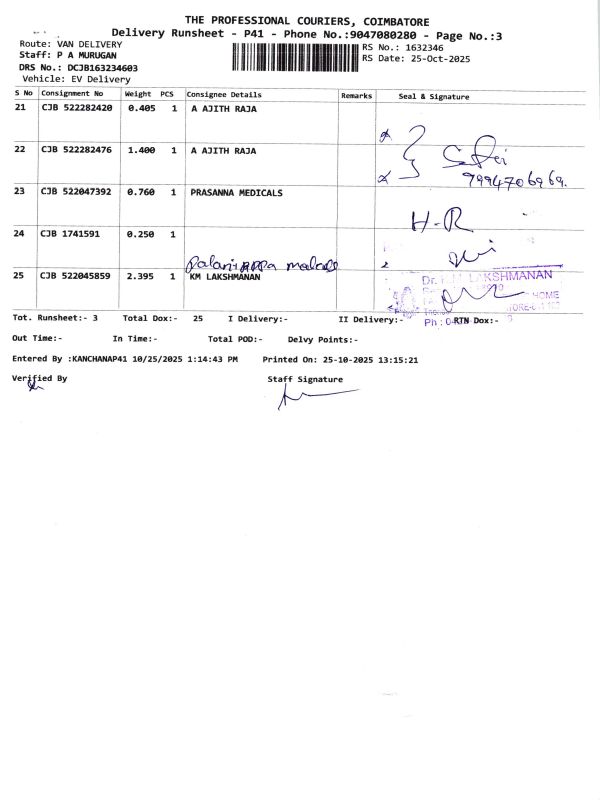 THE PROFESSIONAL COURIERS, COIMBATORE
Delivery Runsheet - P41 - Phone No.:9047080280 - Page No.:3
Route: VAN DELIVERY
Staff: P A MURUGAN
DRS No.: DCJB163234603
Vehicle: EV Delivery
RS No.: 1632346
RS Date: 25-Oct-2025
S No Consignment No Weight PCS Consignee Details Remarks Seal & Signature
21 CJB 522282420 0.405 1 A AJITH RAJA
22 CJB 522282476 1.400 1 A AJITH RAJA
9994706969.
23 CJB 522047392 0.760 1 PRASANNA MEDICALS
H-R
24 CJB 1741591 0.250 1
25 CJB 522045859 2.395 1 KM LAKSHMANAN
Dr. LAKSHMANAN
HOME
Tot. Runsheet:- 3 Total Dox:- 25 I Delivery:- II Delivery:- RTN Dox:-
Ph :
Out Time:- In Time:- Total POD:- Delvy Points:-
Entered By :KANCHANAP41 10/25/2025 1:14:43 PM Printed On: 25-10-2025 13:15:21
Verified By Staff Signature